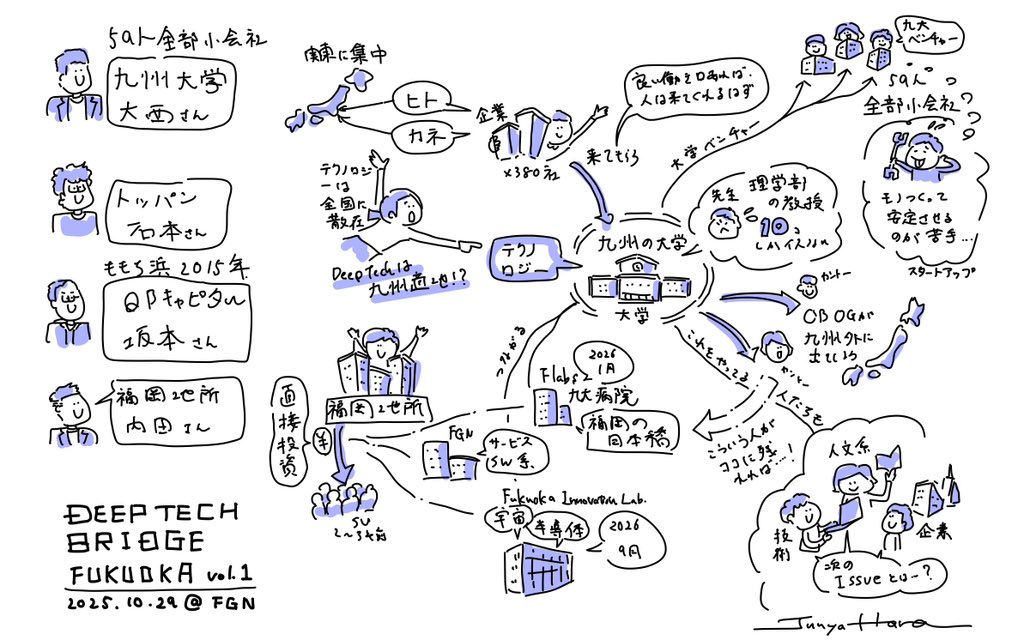 5a人全部小会社
九州大学
大西さん
トッパン
石本さん
ももち浜2015年
QBキャピタル
坂本さん
福岡地所
内田さん
DEEP TECH
BRIDGE
FUKUOKA vol.1
2025.10.29 @ FGN
関東に集中
ヒト
カネ
企業
×380社
良い働き口あれば、
人は来てくれるはず
来てもらう
テクノロジー
は
全国に
散在
Deep Techは
九州適地!?
テクノ
ロジー
九州の大学
大学
大学ベンチャー
九大
ベンチャー
5a人
全部小会社?
モノつくって
安定させる
のが苦手…
スタートアップ
先生
理学部
の教授
10コ
しかイスない
カントー
OB OGが
九州外に
出ている
カントー
これをやってる
人たちを
こういう人が
ココに残
れれば…!
人文系
技術
企業
次の
Issueとは〜?
つながる
福岡地所
直接投資
¥
SU
2〜3年前
FGN
サービス
SW系
Flabs 2
2026
1月
九大病院
福岡の
日本橋
Fukuoka Innovation Lab.
宇宙
半導体
2026
9月
Junya Hara